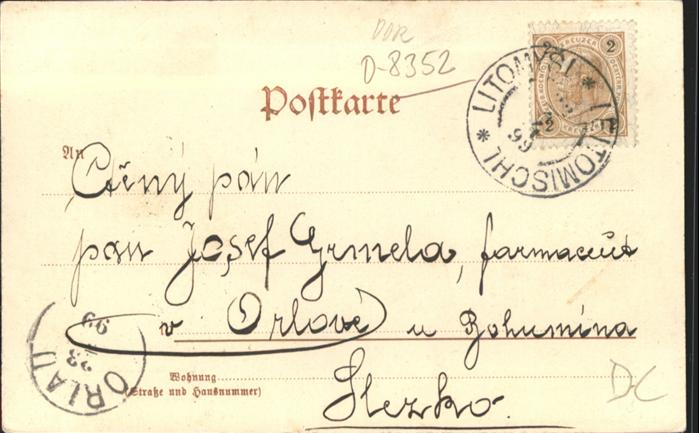 DDR
D-8352
2 KREUZER 2
2 2
LITOMYŠL * LEITOMISCHL *
99
Postkarte
An
Ctěný pán
pan Josef Grmela, farmaceut
v Orlové u Bohumína
Slezko.
Wohnung
(Straße und Hausnummer)
ORLAU
23
99
D-C